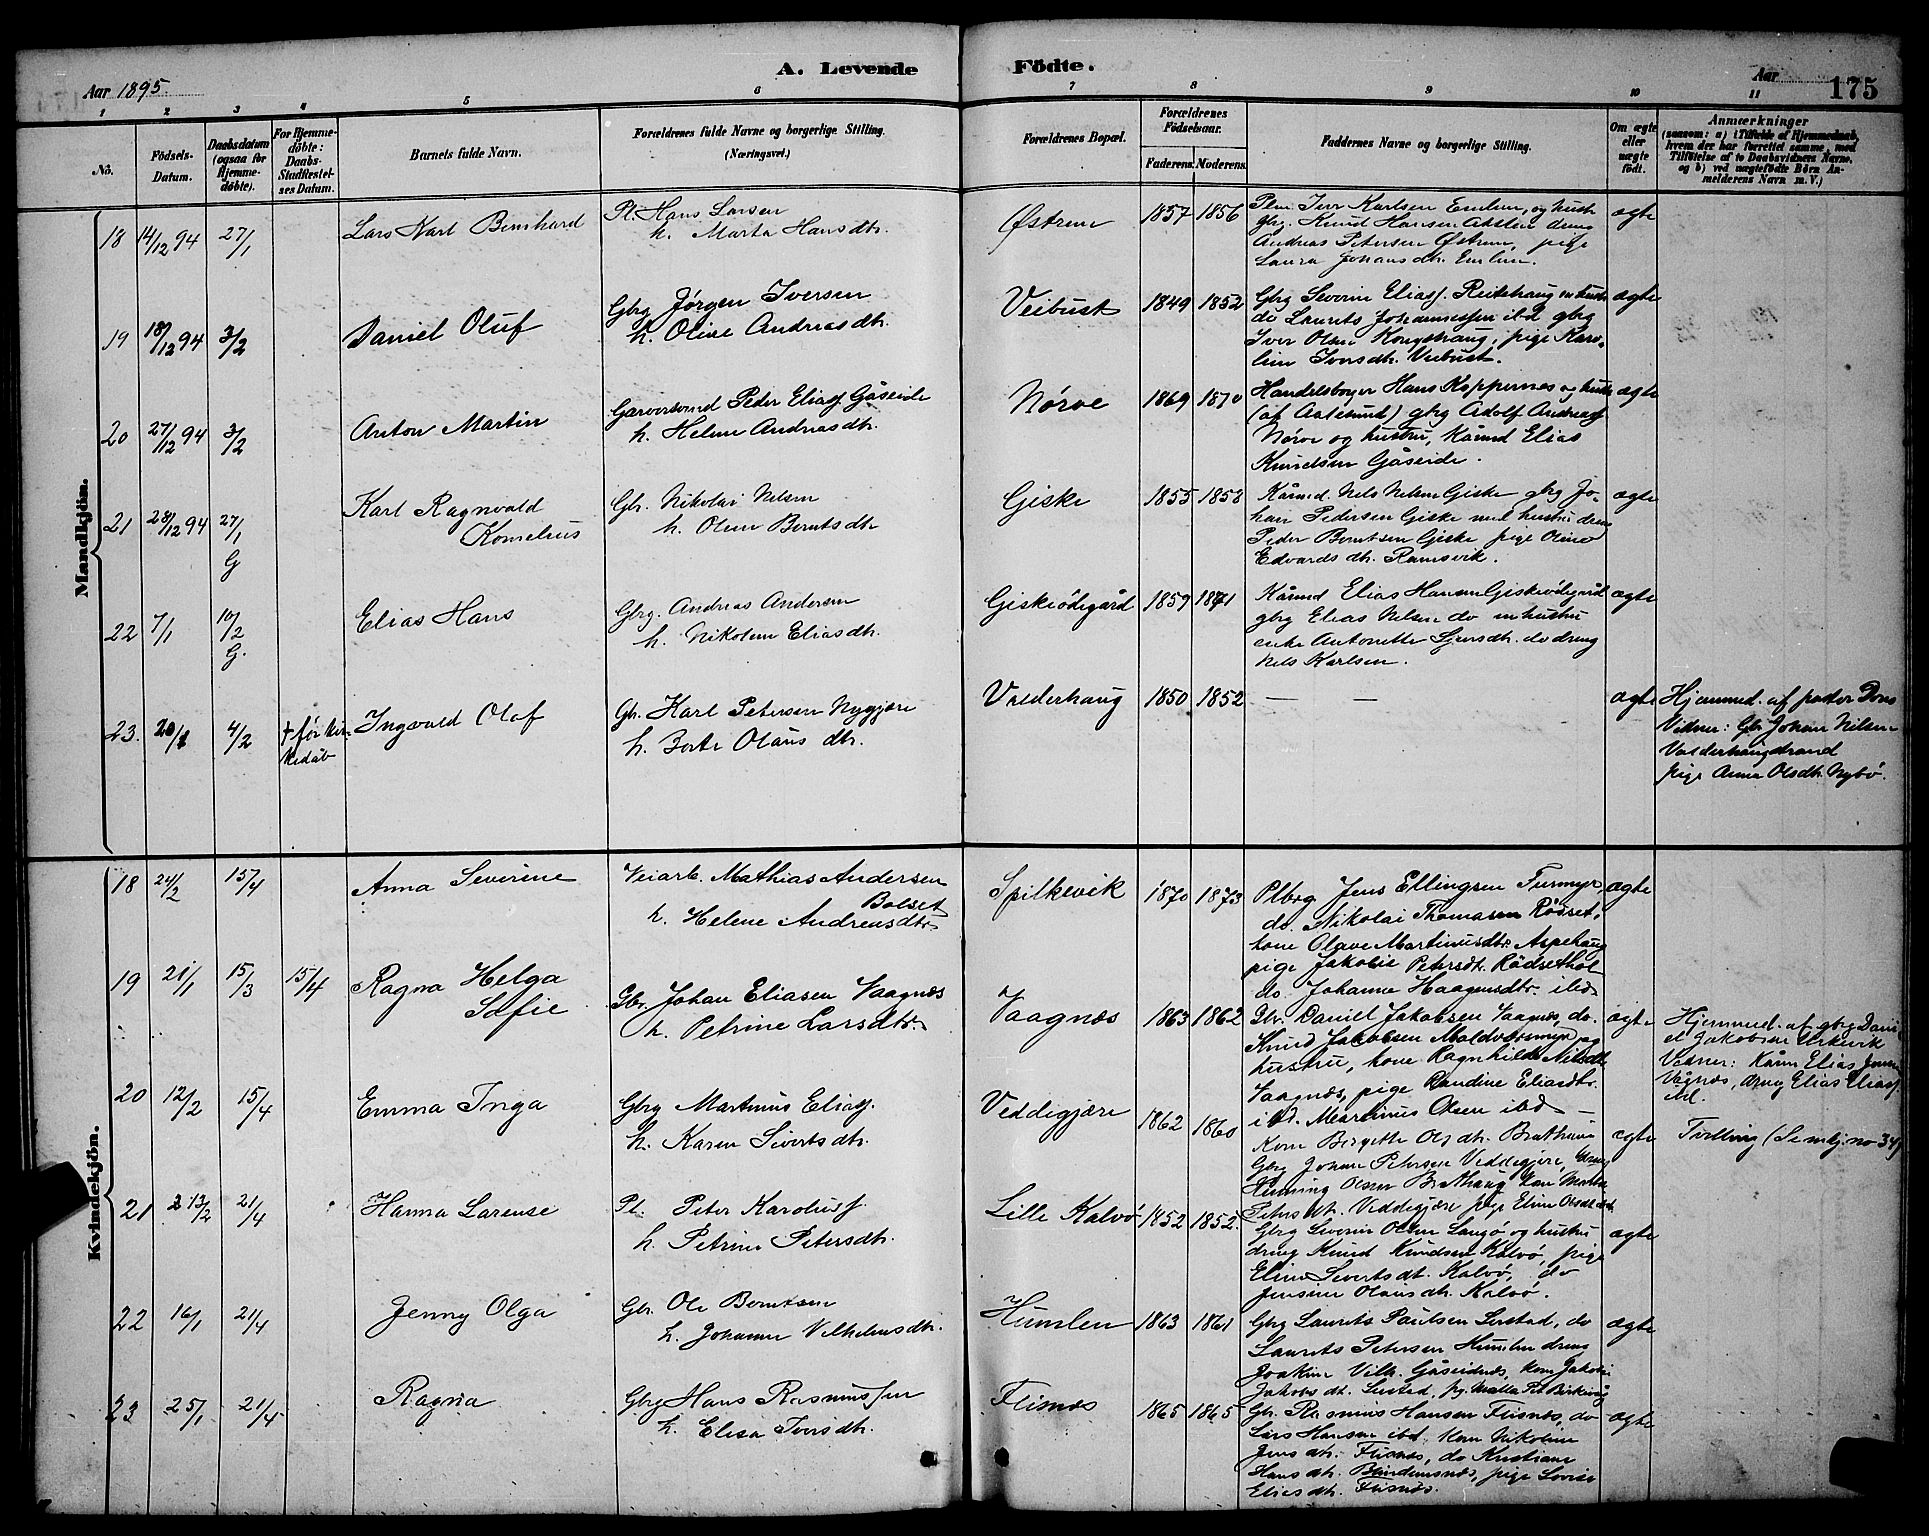 Aar 1895.
A. Levende Födte.
Aar 175
1 2 3 4 5 6 7 8 9 10 11
No.
Födsels-Datum.
Daabsdatum (ogsaa for Hjemme-döbte).
For Hjemme-döbte: Daabs-Stadfæstel-ses Datum.
Barnets fulde Navn.
Forældrenes fulde Navne og borgerlige Stilling.
(Næringsvei.)
Forældrenes Bopæl.
Forældrenes Födselsaar.
Faderens. Moderens.
Faddernes Navne og borgerlige Stilling.
Om ægte eller uægte födt.
Anmærkninger
(saasom: a) i Tilfælde af Hjemmedaab,
hvem der har forrettet samme, med
Tilföielse af to Daabsvidners Navne,
og b) ved uægtefödte Börn An-
melderens Navn m. V.)
Mandkjön.
18 14/12 94 27/1
Lars Karl Bernhard
Pl. Hans Larsen
h. Marta Hansdtr.
Østrem 1857 1856
Plm. Iver Karlsen Emlem, og hustr
gbg. Knud Hansen dreng
Andreas Petersen Østrem, pige
Laura Johansdtr. Emlem.
ægte
19 18/12 94 3/2
Daniel Oluf
Gbrg Jørgen Iversen
h. Oline Andreasdtr.
Veibust 1849 1852
Gbrg Severin Eliasf. Reitehaug m hustr
do Laurits Johannessen ibd gbrg
Iver Olsen Kongshaug, pige Karo-
line Iversdtr. Veibust.
ægte
20 27/12 94 3/2
Anton Martin
Garversvend Peder Eliasf Gåseide
h. Helene Andreasdtr.
Nørve 1869 1870
Handelsborger Hans Koppernæs og hustr
(af Aalesund) gbrg Adolf Andreasf
Nørve og hustru, Kårmd Elias
Knudsen Gåseide.
ægte
21 28/12 94 27/1 G
Karl Ragnvald
Kornelius
Gbr. Nikolai Nilsen
h. Oline Berntsdtr
Giske 1855 1858
Kårmd. Nels Nelsen Giske gbrg Jo-
han Pedersen Giske med hustru dreng
Peder Berntsen Giske pige Olina
Edvardsdtr. Ramsvik.
ægte
22 7/1 10/2 G.
Elias Hans
Gbrg. Andreas Andersen
h. Nikoline Eliasdtr.
Giskeødegård 1859 1871
Kårmd Elias Hansen Giskeødegård
gbrg Elias Nelsen do m hustru
enke Antonette do dreng
Nels Karlsen.
ægte
23. 20/1 4/2 † før kir-kedåb
Ingvald Olaf
Gbr. Karl Petersen Nygjære
h. Berte Olausdtr.
Valderhaug 1850 1852
— —
ægte
Hjemmd. af pastor
Vidner: Gbr Johan Nilsen
Valderhaugstrand
pige Anna Olsdtr. Nybø.
Kvindekjön.
18 24/2 15/4
Anna Severine
Veiarb. Mathias Andersen
Bolset
h. Helene Andreasdtr
Spilkevik 1870 1873
Plbrg Jens Ellingsen Furmyr,
do. Nikolai Thomasen Rødset,
kone Olave Martinusdtr. Aspehaug
pige Jakobie Petersdtr. Rødsethol
do. Johanne Haagensdtr. ibd
ægte
19 21/1 15/3 15/4
Ragna Helga
Sofie
Gbr. Johan Eliasen Vaagnæs
h. Petrine Larsdtr.
Vaagnæs 1863 1862
Gbr. Daniel Jakobsen Vaagnæs, do.
Knud Jakobsen Moldværsmyr og
hustru, kone Ragnhilde Nilsdtr
Vaagnæs, pige Randine Eliasdtr.
ibd. Martinus Olsen ibd —
ægte
Hjemmd. af gbrg Dani-
el Jakobsen
Vidner: Kårm Elias Jensen
Vågnæs, dreng Elias Eliasf
ibd.
20 12/2 15/4
Emma Inga
Gbrg Martinus Eliasf.
h. Karen Sivertsdtr.
Veddegjære 1862 1860
Kone Bergitte Olsdtr. Brathaug
Gbrg Johan Petersen Veddegjære, dreng
Henning Olsen Brathaug kone Marta
Petersdtr. Veddegjære pige Eline Olsdtr
ægte
Tvilling (Se mkj. no 34)
21 13/2 21/4
Hanna Larense
Pl. Peter Karolusf
h. Petrine Petersdtr.
Lille Kalvø 1852 1852.
Gbrg Severin Olsen Langø og hustru
dreng Knud Knudsen Kalvø, pige
Eline Sivertsdt. Kalvø, do
Jensine Olausdtr. Kalvø.
ægte
22 16/1 21/4
Jenny Olga
Gbr. Ole Berntsen
h. Johanne Vilhelmsdtr.
Humlen 1863 1861
Gbrg Laurits Paulsen Sustad, do
Laurits Petersen Humlen dreng
Joakim Vilh. Gåseidnæs, kone Jakobie
Jakobsdt. Sustad, pg. Malla
ægte
23 25/1 21/4
Ragna
Gbrg Hans Rasmussen
h. Elisa Iversdtr.
Flisnæs 1865 1865
Gbr. Rasmus Hansen Flisnæs, do
Lars Hansen ibd. kone Nikoline
Jensdtr. Flisnæs, do Kristiane
Hansdtr. pige Lovise
Eliasdtr. Flisnæs.
ægte